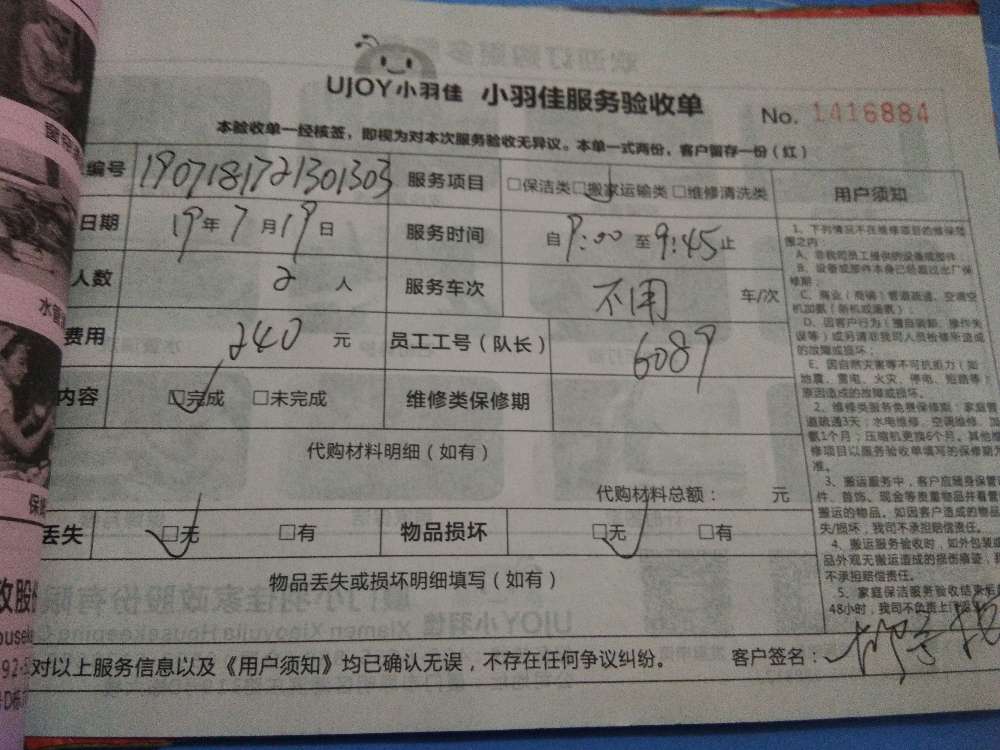 UJOY小羽佳 小羽佳服务验收单 No. 1416884
本验收单一经核签，即视为对本次服务验收无异议。本单一式两份，客户留存一份（红）
编号 1907181721301303 服务项目 □保洁类 □搬家运输类 □维修清洗类 用户须知
日期 19年7月19日 服务时间 自9:00至9:45止
人数 2人 服务车次 不用 车/次
费用 240元 员工工号（队长） 6089
内容 □完成 □未完成 维修类保修期
代购材料明细（如有）
代购材料总额： 元
丢失 □无 □有 物品损坏 □无 □有
物品丢失或损坏明细填写（如有）
对以上服务信息以及《用户须知》均已确认无误，不存在任何争议纠纷。 客户签名：
1、下列情况不在维修项目的维保范
围之内
A、非我司员工提供的设备或部件
B、设备或部件本身已经超过出厂保
修期；
C、商业（商铺）管道疏通、空调空
机加氨（新机或漏氨）；
D、因客户行为（擅自装卸、操作失
误等）或另请非我司人员检修所造成
的故障或损坏；
E、因自然灾害等不可抗拒力（如
地震、雷电、火灾、停电、短路等）
原因造成的故障或损坏。
2、维修类服务免费保修期：家庭管
道疏通3天；水电维修、空调维修、加
氨1个月；压缩机更换6个月。其他
修项目以服务验收单填写的保修期为
准。
3、搬运服务中，客户应随身保管
件、首饰、现金等贵重物品并看管
搬运的物品。如因客户造成的物品
失/损坏，我司不承担赔偿责任。
4、搬运服务验收时，如外包装或
品外观无搬运造成的损伤痕迹，
不承担赔偿责任。
5、家庭保洁服务验收结束
48小时，我司不负责上门
水管
保
政股份